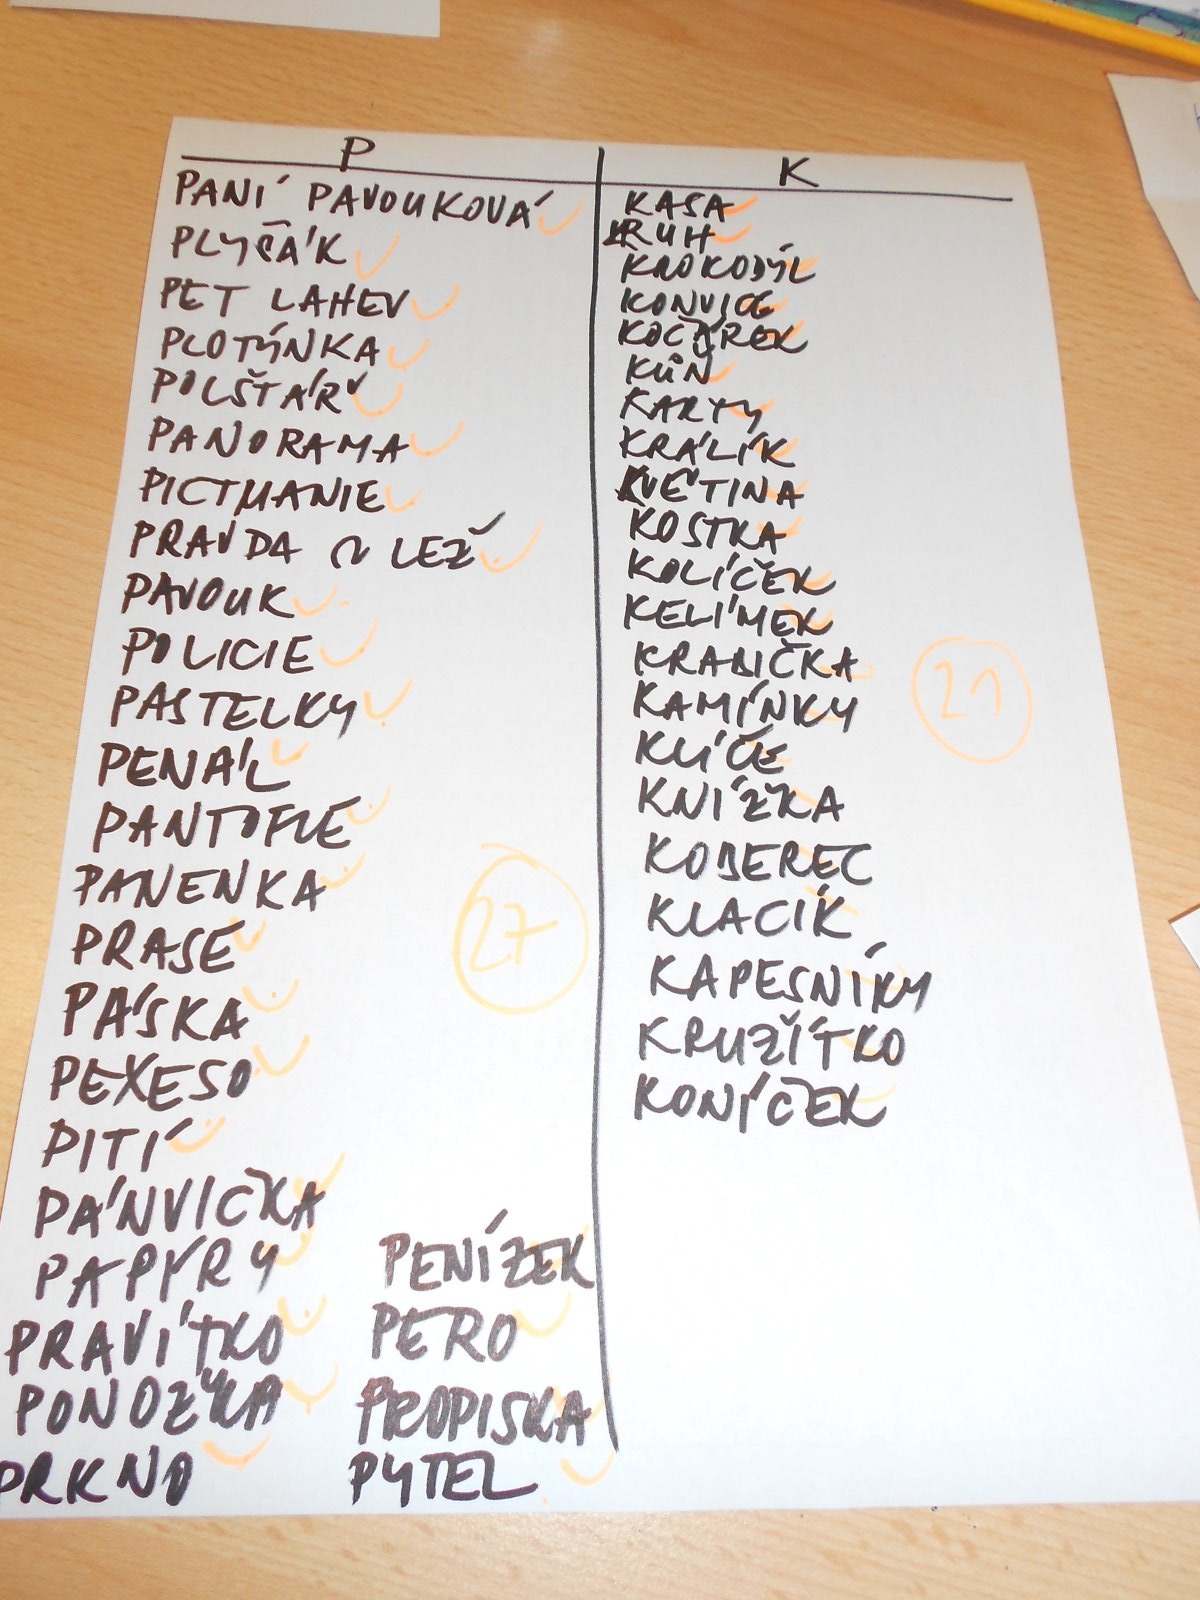 P
PANÍ PAVOUKOVÁ
PLYŠÁK
PET LAHEV
PLOTÝNKA
POLŠTÁŘ
PANORAMA
PICTMANIE
PRAVDA N LEŽ
PAVOUK
POLICIE
PASTELKY
PENÁL
PANTOFLE
PANENKA
PRASE
PÁSKA
PEXESO
PITÍ
PÁNVIČKA
PAPÍRY
PRAVÍTKO
PONOŽKA
PRKNO
PENÍZEK
PERO
PROPISKA
PYTEL
27
K
KASA
KRUH
KROKODÝL
KONVICE
KOČÁREK
KŮŇ
KARTY
KRÁLÍK
KVĚTINA
KOSTKA
KOLÍČEK
KELÍMEK
KRABIČKA
KAMÍNKY
KLÍČE
KNÍŽKA
KOBEREC
KLACÍK
KAPESNÍKY
KRUŽÍTKO
KONÍČEK
21